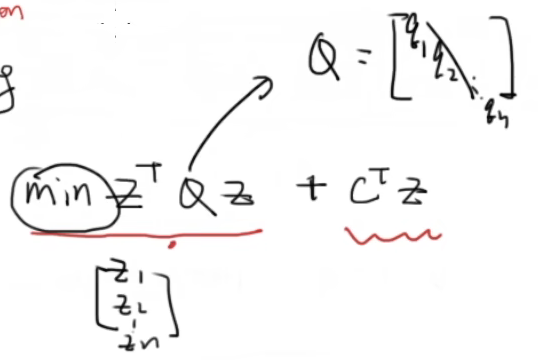 on
g
Q = [q₁ q₂ ⋱ qₙ]
min zᵀ Q z + cᵀ z
[z₁
z₂
⋮
zₙ]